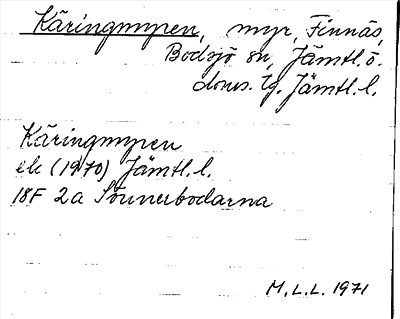 Käringmyren, myr, Finnäs,
Bodsjö sn, Jämtl. ö.
doms. tg. Jämtl. l.
Käringmyren
ek (1970) Jämtl. l.
18F 2a Sönnerbodarna
M.L.L. 1971